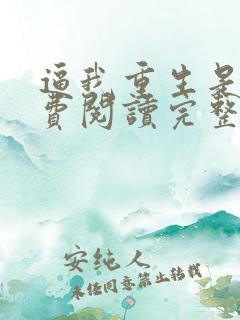 逼我重生是
費閱讀完整
安纯人
未经同意禁止转载